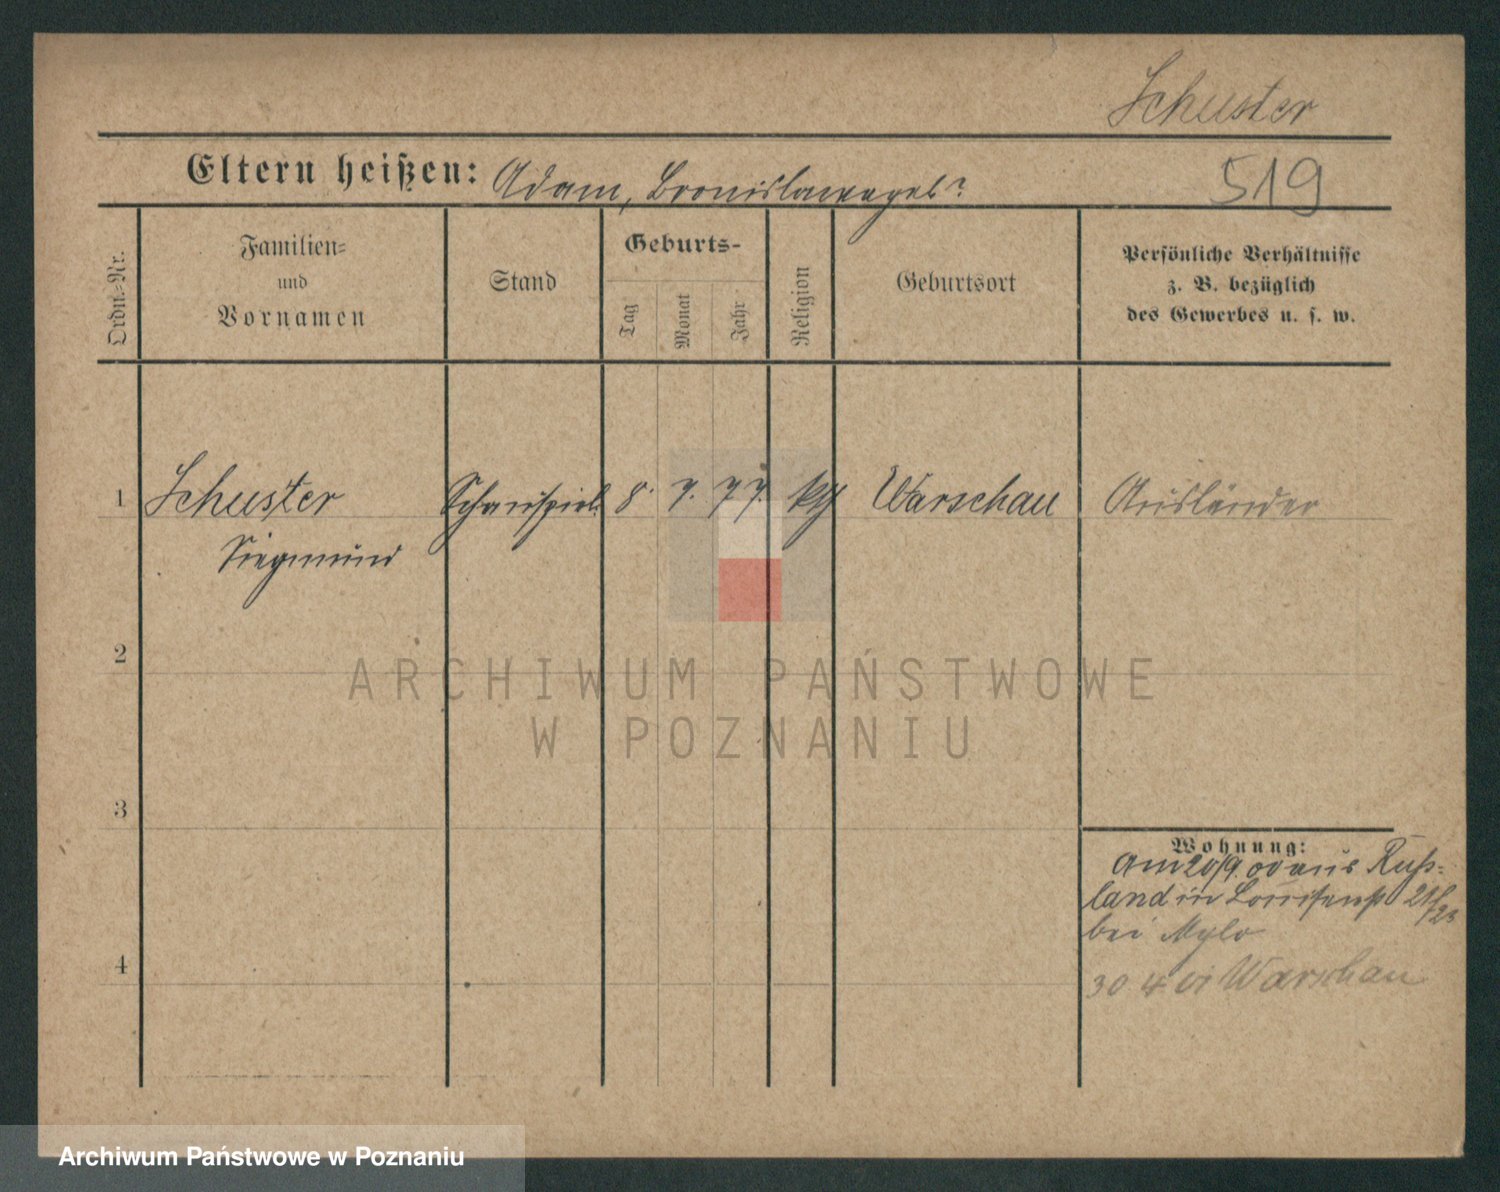 Schuster
Eltern heißen: Adam, Bronislawa geb?
519
Ordn.-Nr.
Familien-
und
Vornamen
Stand
Geburts-
Tag
Monat
Jahr
Religion
Geburtsort
Persönliche Verhältnisse
z. B. bezüglich
des Gewerbes u. s. w.
1 Schuster Schauspiel. 8. 7. 77. kth Warschau Ausländer
Siegmund
2
ARCHIWUM PAŃSTWOWE
W POZNANIU
3
Wohnung:
Am 20/9. 00 aus Ruß-
land in Louisenstr 21/23
bei Mylo
30 4 01 Warschau
4
Archiwum Państwowe w Poznaniu